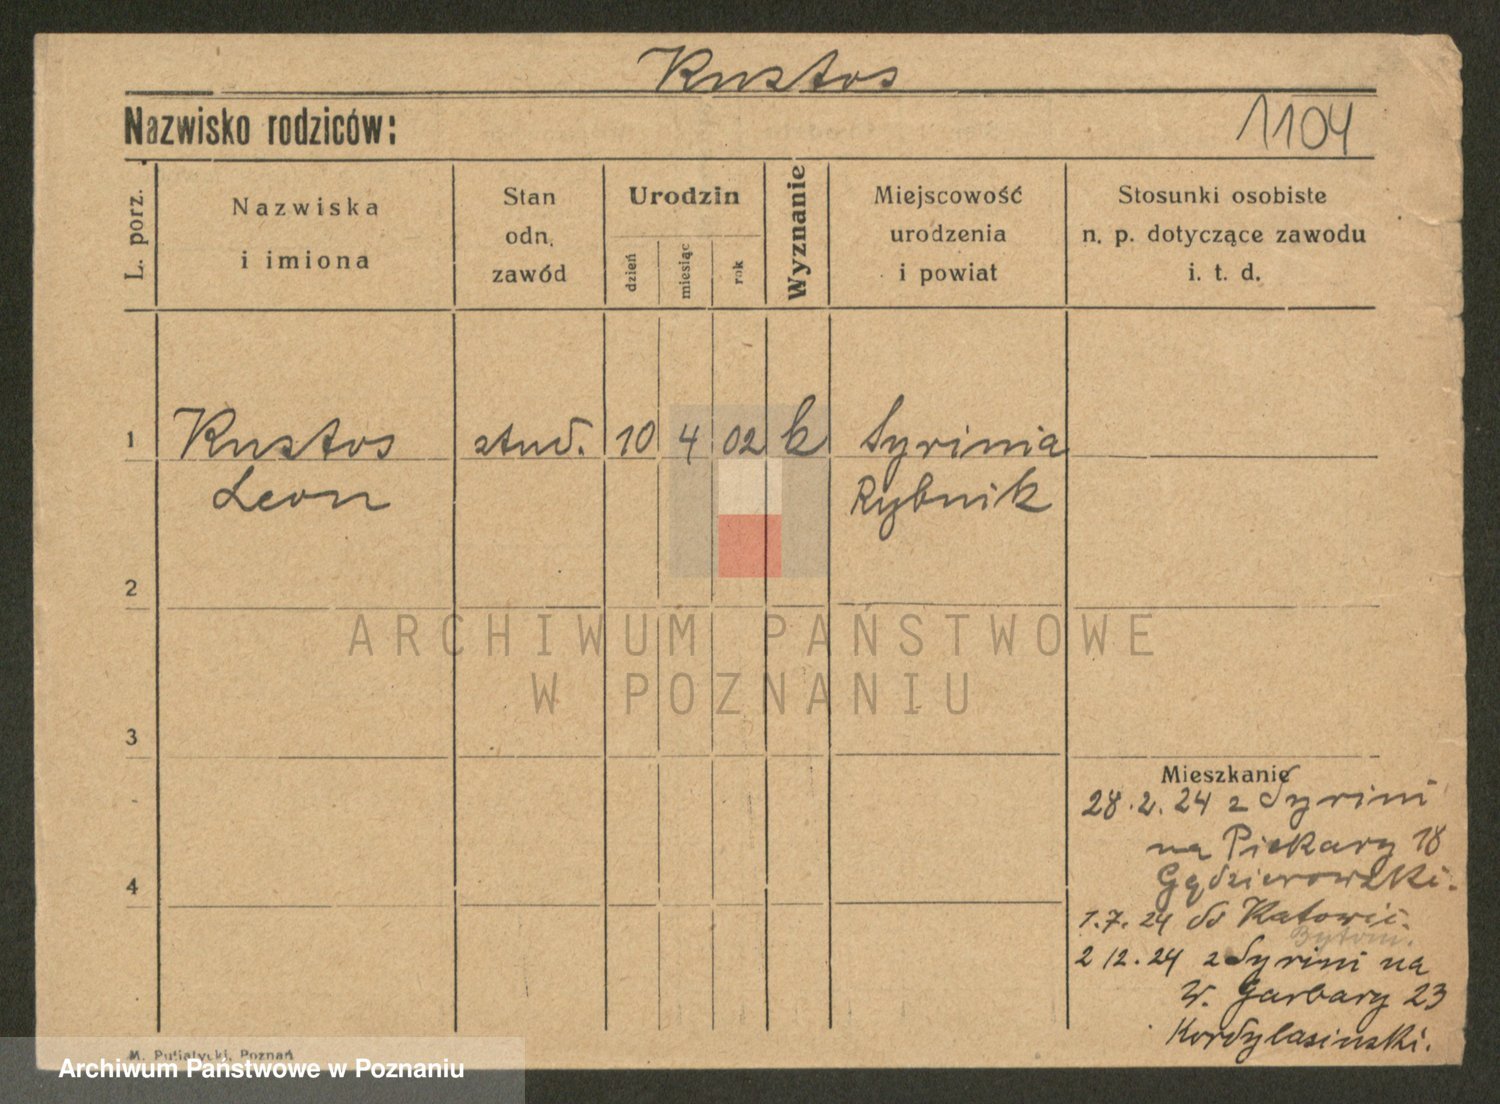 Kustos
Nazwisko rodziców:
1104
L. porz.
Nazwiska
i imiona
Stan
odn.
zawód
Urodzin
dzień
miesiąc
rok
Wyznanie
Miejscowość
urodzenia
i powiat
Stosunki osobiste
n. p. dotyczące zawodu
i. t. d.
1 Kustos stud. 10 4 02 k Syrinia
Leon Rybnik
2
ARCHIWUM PAŃSTWOWE
W POZNANIU
3
Mieszkanie
28.2.24 z Syrini
na Piekary 18
4
1.7.24 do Katowic.
Bytom.
2 12.24 z Syrini na
W. Garbary 23
Kordylasinski.
M. Putiatycki, Poznań
Archiwum Państwowe w Poznaniu